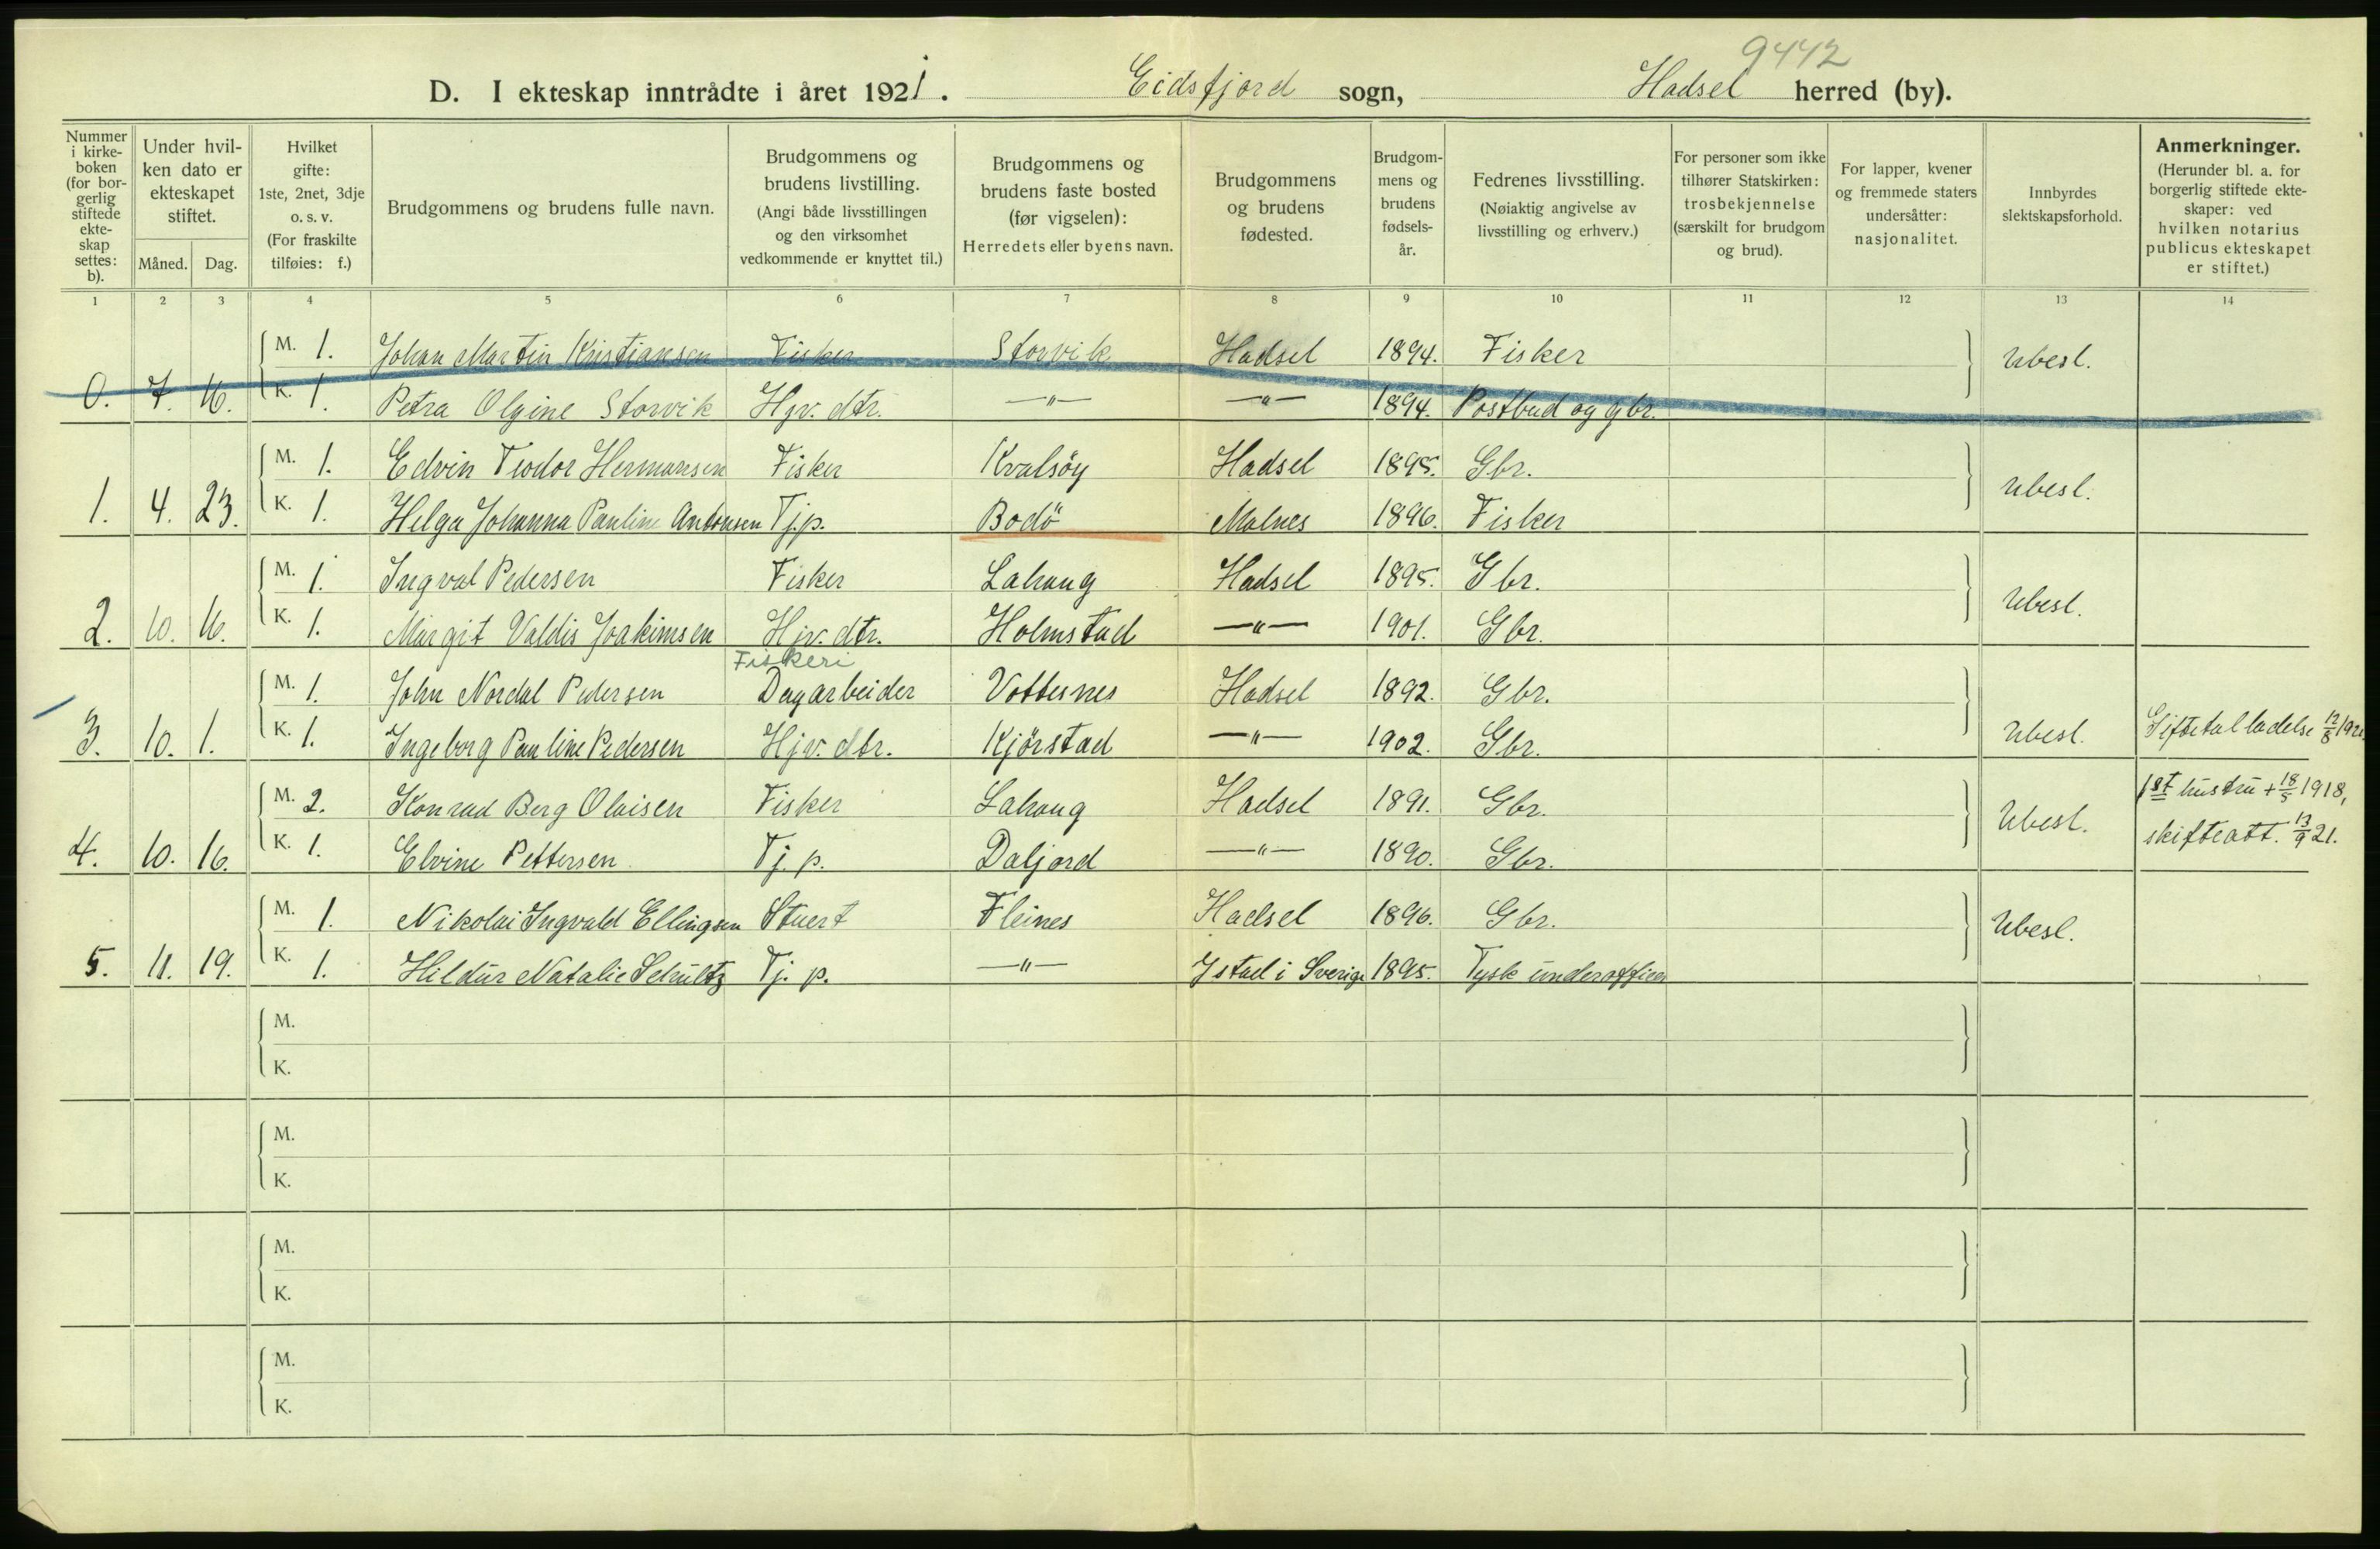 9442
D. I ekteskap inntrådte i året 1921. Eidsfjord sogn, Hadsel herred (by).
Nummer i kirke- boken (for bor- gerlig stiftede ekte- skap settes: b).
Under hvil- ken dato er ekteskapet stiftet.
Måned. Dag.
Hvilket gifte: 1ste, 2net, 3dje o. s. v. (For fraskilte tilføies: f.)
Brudgommens og brudens fulle navn.
Brudgommens og brudens livstilling. (Angi både livsstillingen og den virksomhet vedkommende er knyttet til.)
Brudgommens og brudens faste bosted (før vigselen): Herredets eller byens navn.
Brudgommens og brudens fødested.
Brudgom- mens og brudens fødsels- år.
Fedrenes livsstilling. (Nøiaktig angivelse av livsstilling og erhverv.)
For personer som ikke tilhører Statskirken: trosbekjennelse (særskilt for brudgom og brud).
For lapper, kvener og fremmede staters undersåtter: nasjonalitet.
Innbyrdes slektskapsforhold.
Anmerkninger. (Herunder bl. a. for borgerlig stiftede ekte- skaper: ved hvilken notarius publicus ekteskapet er stiftet.)
1 2 3 4 5 6 7 8 9 10 11 12 13 14
M. 1. Johan Martin Kristiansen Fisker Storvik Hadsel 1894. Fisker Ubesl.
0. 7. 16. K. 1. Petra Olgine Storvik Hjv. dtr. —"— —"— 1894. Postbud og gbr.
M. 1. Edvin Teodor Hermansen Fisker Kvalsöy Hadsel 1895. Gbr. Ubesl.
1. 4. 23. K. 1. Helga Johanna Pauline Antonsen Tj.p. Bodö Malnes 1896. Fisker
M. 1. Ingval Pedersen Fisker Lahaug Hadsel 1895. Gbr. Ubesl.
2. 10. 16. K. 1. Margit Valdis Joakimsen Hjv. dtr. Holmstad —"— 1901. Gbr.
Fiskeri
M. 1. John Nordal Pedersen Dagarbeider Vottesnes Hadsel 1892. Gbr.
3. 10. 1. K. 1. Ingeborg Pauline Pedersen Hjv. dtr. Kjörstad —"— 1902. Gbr. Ubesl. Giftetilladelse 12/8 192
M. 2. Konrad Berg Olaisen Fisker Lahaug Hadsel 1891. Gbr. Ubesl. 1st hustru + 18/5 1918,
4. 10. 16. K. 1. Elvine Pettersen Tj. p. Daljord —"— 1890. Gbr. skifteatt. 13/9 21.
M. 1. Nikolai Ingvald Ellingsen Stuert Fleines Hadsel 1896. Gbr. Ubesl.
5. 11. 19. K. 1. Hildur Natalie Schultz Tj. p. —"— Ystad i Sverige 1895. Tysk underofficer
M.
K.
M.
K.
M.
K.
M.
K.